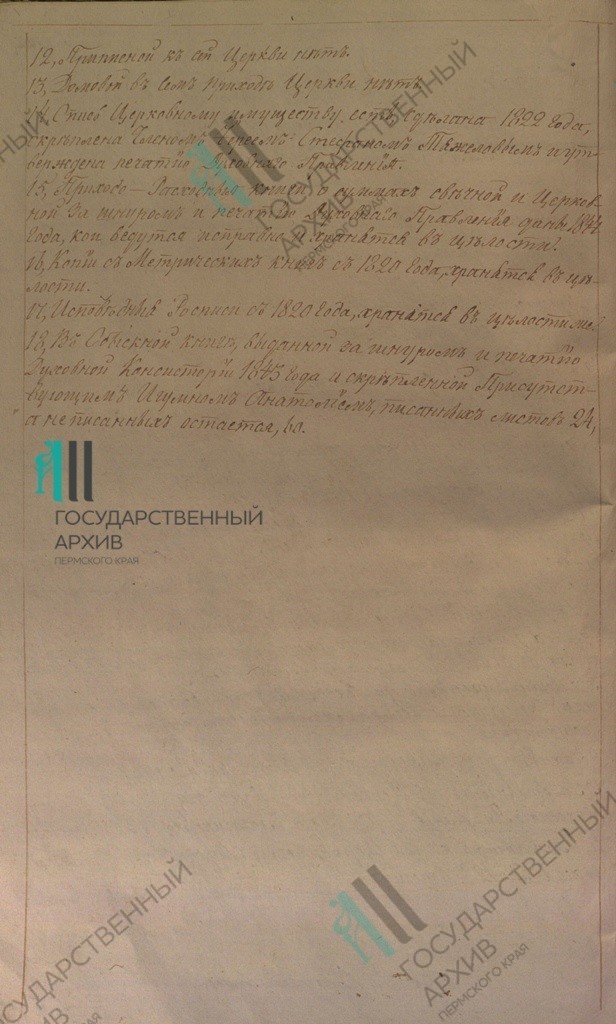 12, Приписной къ сей Церкви нѣтъ.
13, Домовой въ семъ приходѣ Церкви нѣтъ.
14, Опись Церковному имуществу есть сдѣлана 1822 года,
скрѣплена Членомъ Іереемъ Стефаномъ Тяжеловымъ и ут-
верждена печатію Духовнаго Правленія.
15, Приходо-Расходныя книги о суммахъ свѣчной и Церков-
ной за шнуромъ и печатію Духовнаго Правленія даны 1844
года, кои ведутся исправно и хранятся въ цѣлости.
16, Копіи съ Метрическихъ книгъ съ 1820 года, хранятся въ цѣ-
лости.
17, Исповѣдныя Росписи съ 1820 года, хранятся въ цѣлости
18, Въ Обыскной книгѣ, выданной за шнуромъ и печатію
Духовной Консисторіи 1845 года и скрѣпленной Присутст-
вующимъ Игумномъ Анатоліемъ, писанныхъ листовъ 24,
а неписанныхъ остается,
ГОСУДАРСТВЕННЫЙ
АРХИВ
ПЕРМСКОГО КРАЯ
ГОСУДАРСТВЕННЫЙ
АРХИВ
ПЕРМСКОГО КРАЯ
ГОСУДАРСТВЕННЫЙ
АРХИВ
ГОСУДАРСТВЕННЫЙ
АРХИВ
ПЕРМСКОГО КРАЯ